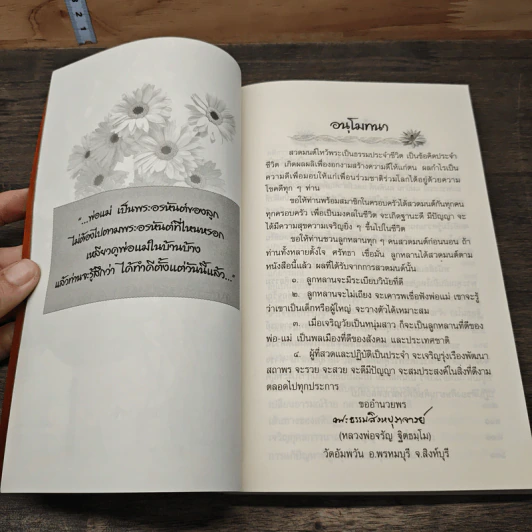 "...พ่อแม่ เป็นพระอรหันต์ของลูก
ไม่ต้องไปตามพระอรหันต์ที่ไหนหรอก
เหลียวดูพ่อแม่ในบ้านบ้าง
แล้วท่านจะรู้สึกว่า ได้ทำดีตั้งแต่วันนี้แล้ว..."
อนุโมทนา
สวดมนต์ไหว้พระเป็นธรรมประจำชีวิต เป็นข้อคิดประจำ
ชีวิต เกิดผลผลิเพื่องอกงามสร้างความดีให้แก่ตน ผลกำไรเป็น
ความดีเพื่อมอบให้แก่เพื่อนร่วมชาติร่วมโลกได้อยู่ด้วยความ
โชคดีทุก ๆ ท่าน
ขอให้ท่านพร้อมสมาชิกในครอบครัวได้สวดมนต์กันทุกคน
ทุกครอบครัว เพื่อเป็นมงคลในชีวิต จะเกิดฐานะดี มีปัญญา จะ
ได้มีความสุขความเจริญยิ่ง ๆ ขึ้นไปในชีวิต
ขอให้ท่านชวนลูกหลานทุก ๆ คนสวดมนต์ก่อนนอน ถ้า
ท่านทั้งหลายตั้งใจ ศรัทธา เชื่อมั่น ลูกหลานได้สวดมนต์ตาม
หนังสือนี้แล้ว ผลที่ได้รับจากการสวดมนต์นั้น
๑. ลูกหลานจะมีระเบียบวินัยที่ดี
๒. ลูกหลานจะไม่เถียง จะเคารพเชื่อฟังพ่อแม่ เขาจะรู้
ว่าเขาเป็นเด็กหรือผู้ใหญ่ จะวางตัวได้เหมาะสม
๓. เมื่อเจริญวัยเป็นหนุ่มสาว ก็จะเป็นลูกหลานที่ดีของ
พ่อ-แม่ เป็นพลเมืองที่ดีของสังคม และประเทศชาติ
๔. ผู้ที่สวดและปฏิบัติเป็นประจำ จะเจริญรุ่งเรืองพัฒนา
สถาพร จะรวย จะสวย จะดีมีปัญญา จะสมประสงค์ในสิ่งที่ดีงาม
ตลอดไปทุกประการ
ขออำนวยพร
พระธรรมสิงหบุราจารย์
(หลวงพ่อจรัญ ฐิตธมฺโม)
วัดอัมพวัน อ.พรหมบุรี จ.สิงห์บุรี